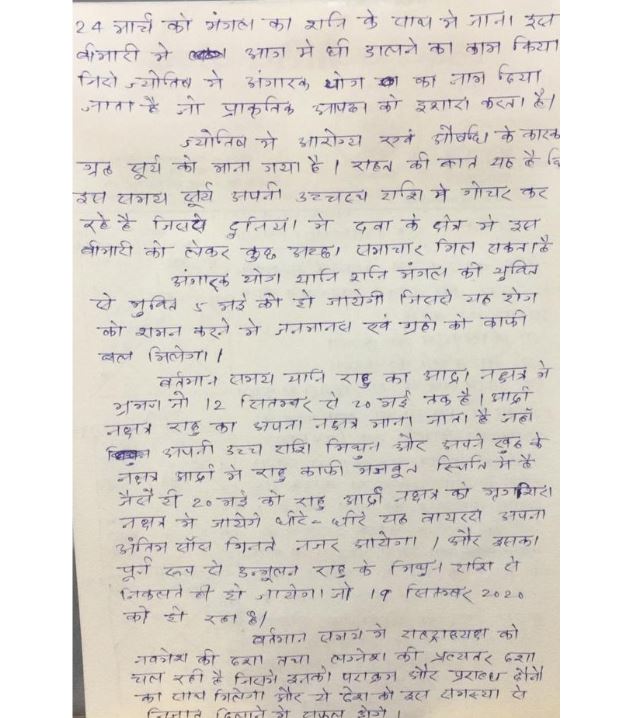 24 मार्च को मंगल का शनि के साथ मे जाना इस
बीमारी मे आग मे घी डालने का काम किया
जिसे ज्योतिष मे अंगारक योग का नाम दिया
जाता है जो प्राकृतिक आपदा को इशारा करता है।
ज्योतिष मे आरोग्य एवं औषधि के कारक
ग्रह सूर्य को माना गया है। राहत की बात यह है कि
इस समय सूर्य अपनी उच्चस्थ राशि मे गोचर कर
रहे है जिससे दुनिया मे दवा के क्षेत्र मे इस
बीमारी को लेकर कुछ अच्छा समाचार मिल सकता है
अंगारक योग यानि शनि मंगल की युक्ति
से मुक्ति 5 मई को हो जायेगी जिससे यह रोग
को शमन करने मे जनमानस एवं ग्रहो को काफी
बल मिलेगा।
वर्तमान समय यानि राहु का आद्रा नक्षत्र मे
भ्रमण जो 12 सितम्बर से 20 मई तक है। आर्द्रा
नक्षत्र राहु का अपना नक्षत्र माना जाता है जहाँ
अपनी उच्च राशि मिथुन और अपने खुद के
नक्षत्र आर्द्रा मे राहु काफी मजबूत स्थिति मे है
जैसे ही 20 मई को राहु आर्द्रा नक्षत्र को मृगशिरा
नक्षत्र मे जायेगे धीरे-धीरे यह वायरस अपना
अंतिम साँस गिनते नजर आयेगा। और इसका
पूर्ण रूप से उन्मूलन राहु के मिथुन राशि से
निकलते ही हो जायेगा जो 19 सितम्बर 2020
को हो रहा है।
वर्तमान समय मे राष्ट्राध्यक्ष को
नवमेश की दशा तथा लग्नेश की प्रत्यंतर दशा
चल रही है जिससे उनको पराक्रम और प्रारब्ध दोनो
का साथ मिलेगा और ये देश को इस समस्या से
निजात दिलाने मे सफल होगे।